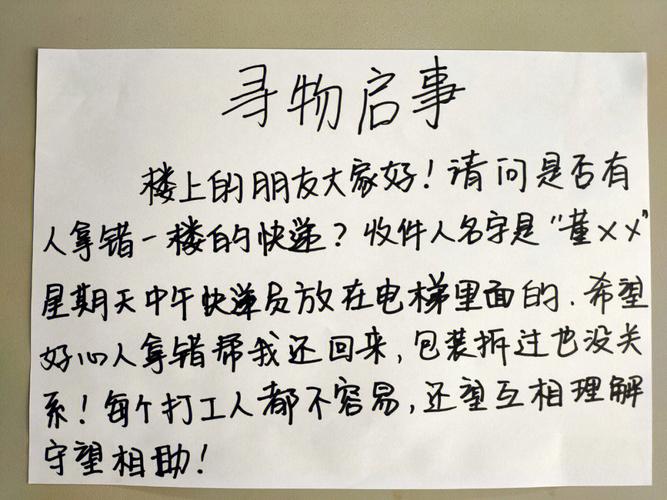 寻物启事
楼上的朋友大家好！请问是否有
人拿错一楼的快递？收件人名字是“董××”
星期天中午快递员放在电梯里面的.希望
好心人拿错帮我还回来,包装拆过也没关
系！每个打工人都不容易,还望互相理解
守望相助！